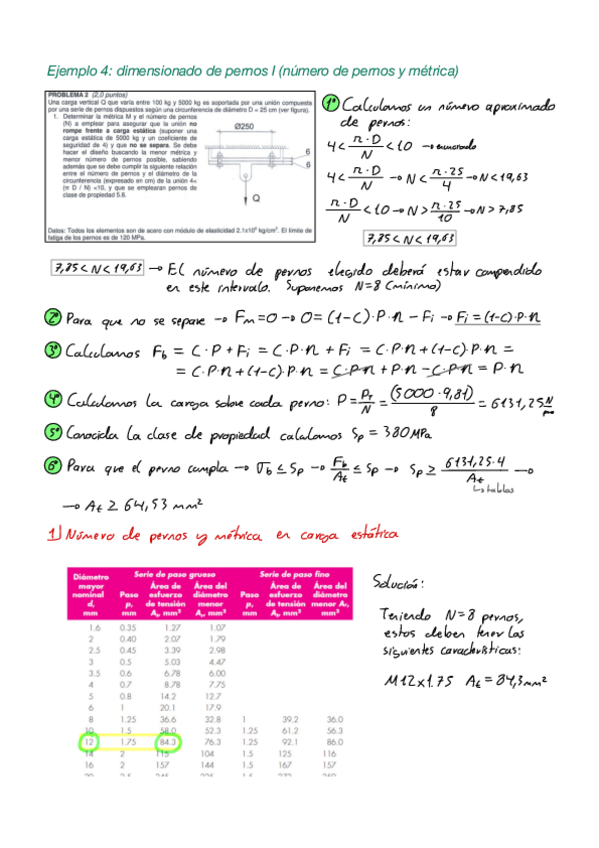 Ejemplo 4: dimensionado de pernos I (número de pernos y métrica)
PROBLEMA 2 (2,0 puntos)
Una carga vertical Q que varía entre 100 kg y 5000 kg es soportada por una unión compuesta
por una serie de pernos dispuestos según una circunferencia de diámetro D = 25 cm (ver figura).
1. Determinar la métrica M y el número de pernos
(N) a emplear para asegurar que la unión no
rompe frente a carga estática (suponer una
carga estática de 5000 kg y un coeficiente de
seguridad de 4) y que no se separa. Se debe
hacer el diseño buscando la menor métrica y
menor número de pernos posible, sabiendo
además que se debe cumplir la siguiente relación
entre el número de pernos y el diámetro de la
circunferencia (expresado en cm) de la unión 4<
(π D / N) <10, y que se emplearan pernos de
clase de propiedad 5.8.
Ø250
6
6
Q
Datos: Todos los elementos son de acero con módulo de elasticidad 2.1x10⁶ kg/cm². El límite de
fatiga de los pernos es de 120 MPa.
1º Calculamos un número aproximado
de pernos:
4 < π·D/N < 10 → enunciado
4 < π·D/N → N < π·25/4 → N < 19,63
π·D/N < 10 → N > π·25/10 → N > 7,85
7,85 < N < 19,63
7,85 < N < 19,63 → El número de pernos elegido deberá estar comprendido
en este intervalo. Suponemos N=8 (mínimo)
2º Para que no se separe → Fm=0 → 0=(1-C)·P·n - Fi → Fi=(1-C)·P·n
3º Calculamos Fb = C·P+Fi = C·P·n + Fi = C·P·n+(1-C)·P·n =
= C·P·n+(1-C)·P·n = C·P·n + P·n - C·P·n = P·n
4º Calculamos la carga sobre cada perno: P = PT/N = (5000·9,81)/8 = 6131,25 N/
5º Conocida la clase de propiedad calculamos Sp = 380 MPa
6º Para que el perno cumpla → σb ≤ Sp → Fb/At ≤ Sp → Sp ≥ 6131,25·4/At →
↳ tablas
→ At ≥ 64,53 mm²
1) Número de pernos y métrica en carga estática
Diámetro mayor nominal d, mm
Serie de paso grueso
Serie de paso fino
Paso p, mm
Área de esfuerzo de tensión At, mm²
Área del diámetro menor Ar, mm²
Paso p, mm
Área de esfuerzo de tensión At, mm²
Área del diámetro menor Ar, mm²
1.6 0.35 1.27 1.07
2 0.40 2.07 1.79
2.5 0.45 3.39 2.98
3 0.5 5.03 4.47
3.5 0.6 6.78 6.00
4 0.7 8.78 7.75
5 0.8 14.2 12.7
6 1 20.1 17.9
8 1.25 36.6 32.8 1 39.2 36.0
10 1.5 58.0 52.3 1.25 61.2 56.3
12 1.75 84.3 76.3 1.25 92.1 86.0
14 2 115 104 1.5 125 116
16 2 157 144 1.5 167 157
Solución:
Teniendo N=8 pernos,
estos deben tener las
siguientes características:
M12x1.75 At=84,3mm²